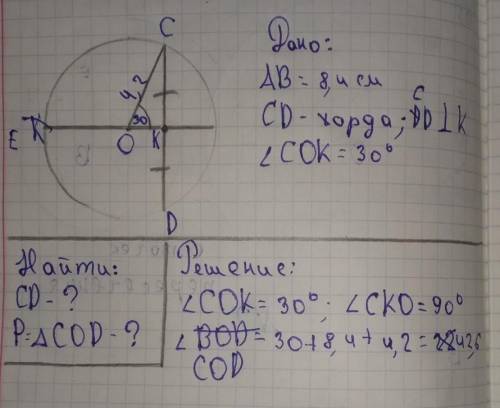 C
4,2
30
E
O
K
D
Дано:
AB = 8,4 см
CD - хорда; CD ⊥ K
∠COK = 30°
Найти:
CD - ?
P = △COD - ?
Решение:
∠COK = 30°; ∠CKO = 90°
∠COD = 30 + 8,4 + 4,2 = 42,6